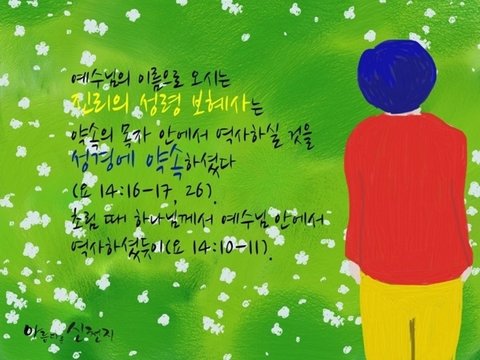 예수님의 이름으로 오시는
진리의 성령 보혜사는
약속의 목자 안에서 역사하실 것을
성경에 약속하셨다
(요 14:16-17, 26).
초림 때 하나님께서 예수님 안에서
역사하셨듯이(요 14:10-11).
아름다운 신천지